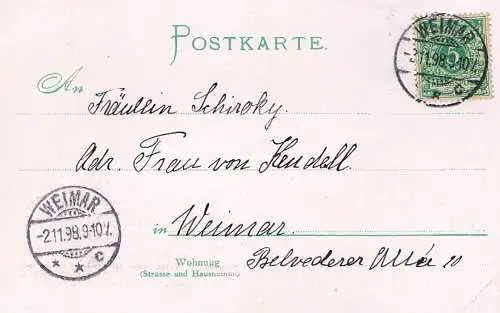 POSTKARTE.
WEIMAR
2.11.98.9-10V.
* c
5
An Fräulein Schirosky,
Adr. Frau von Kendell.
WEIMAR
-2.11.98.9-10V.
* * c
in Weimar.
Wohnung Belvederer Allée 10
(Strasse und Hausnummer)